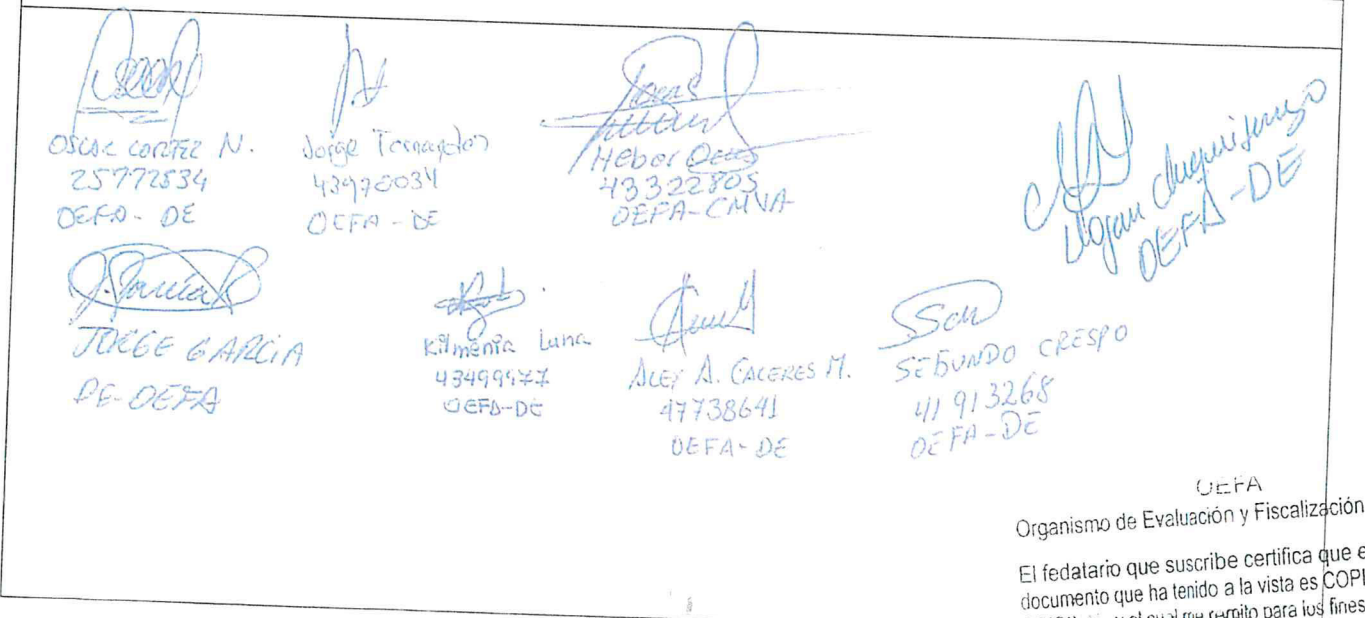 OSCAR CORTEZ N.
25772534
OEFA - DE
Jorge
OEFA - DE
Heber
43322805
OEFA-CMVA
OEFA-DE
J. Garcia
JORGE GARCIA
DE-OEFA
Kilmenia Luna
OEFA-DE
ALEX A. CACERES M.
47738641
OEFA-DE
SEGUNDO CRESPO
41913268
OEFA-DE
OEFA
Organismo de Evaluación y Fiscalización
El fedatario que suscribe certifica que e
documento que ha tenido a la vista es COPI
al cual me remito para los fines